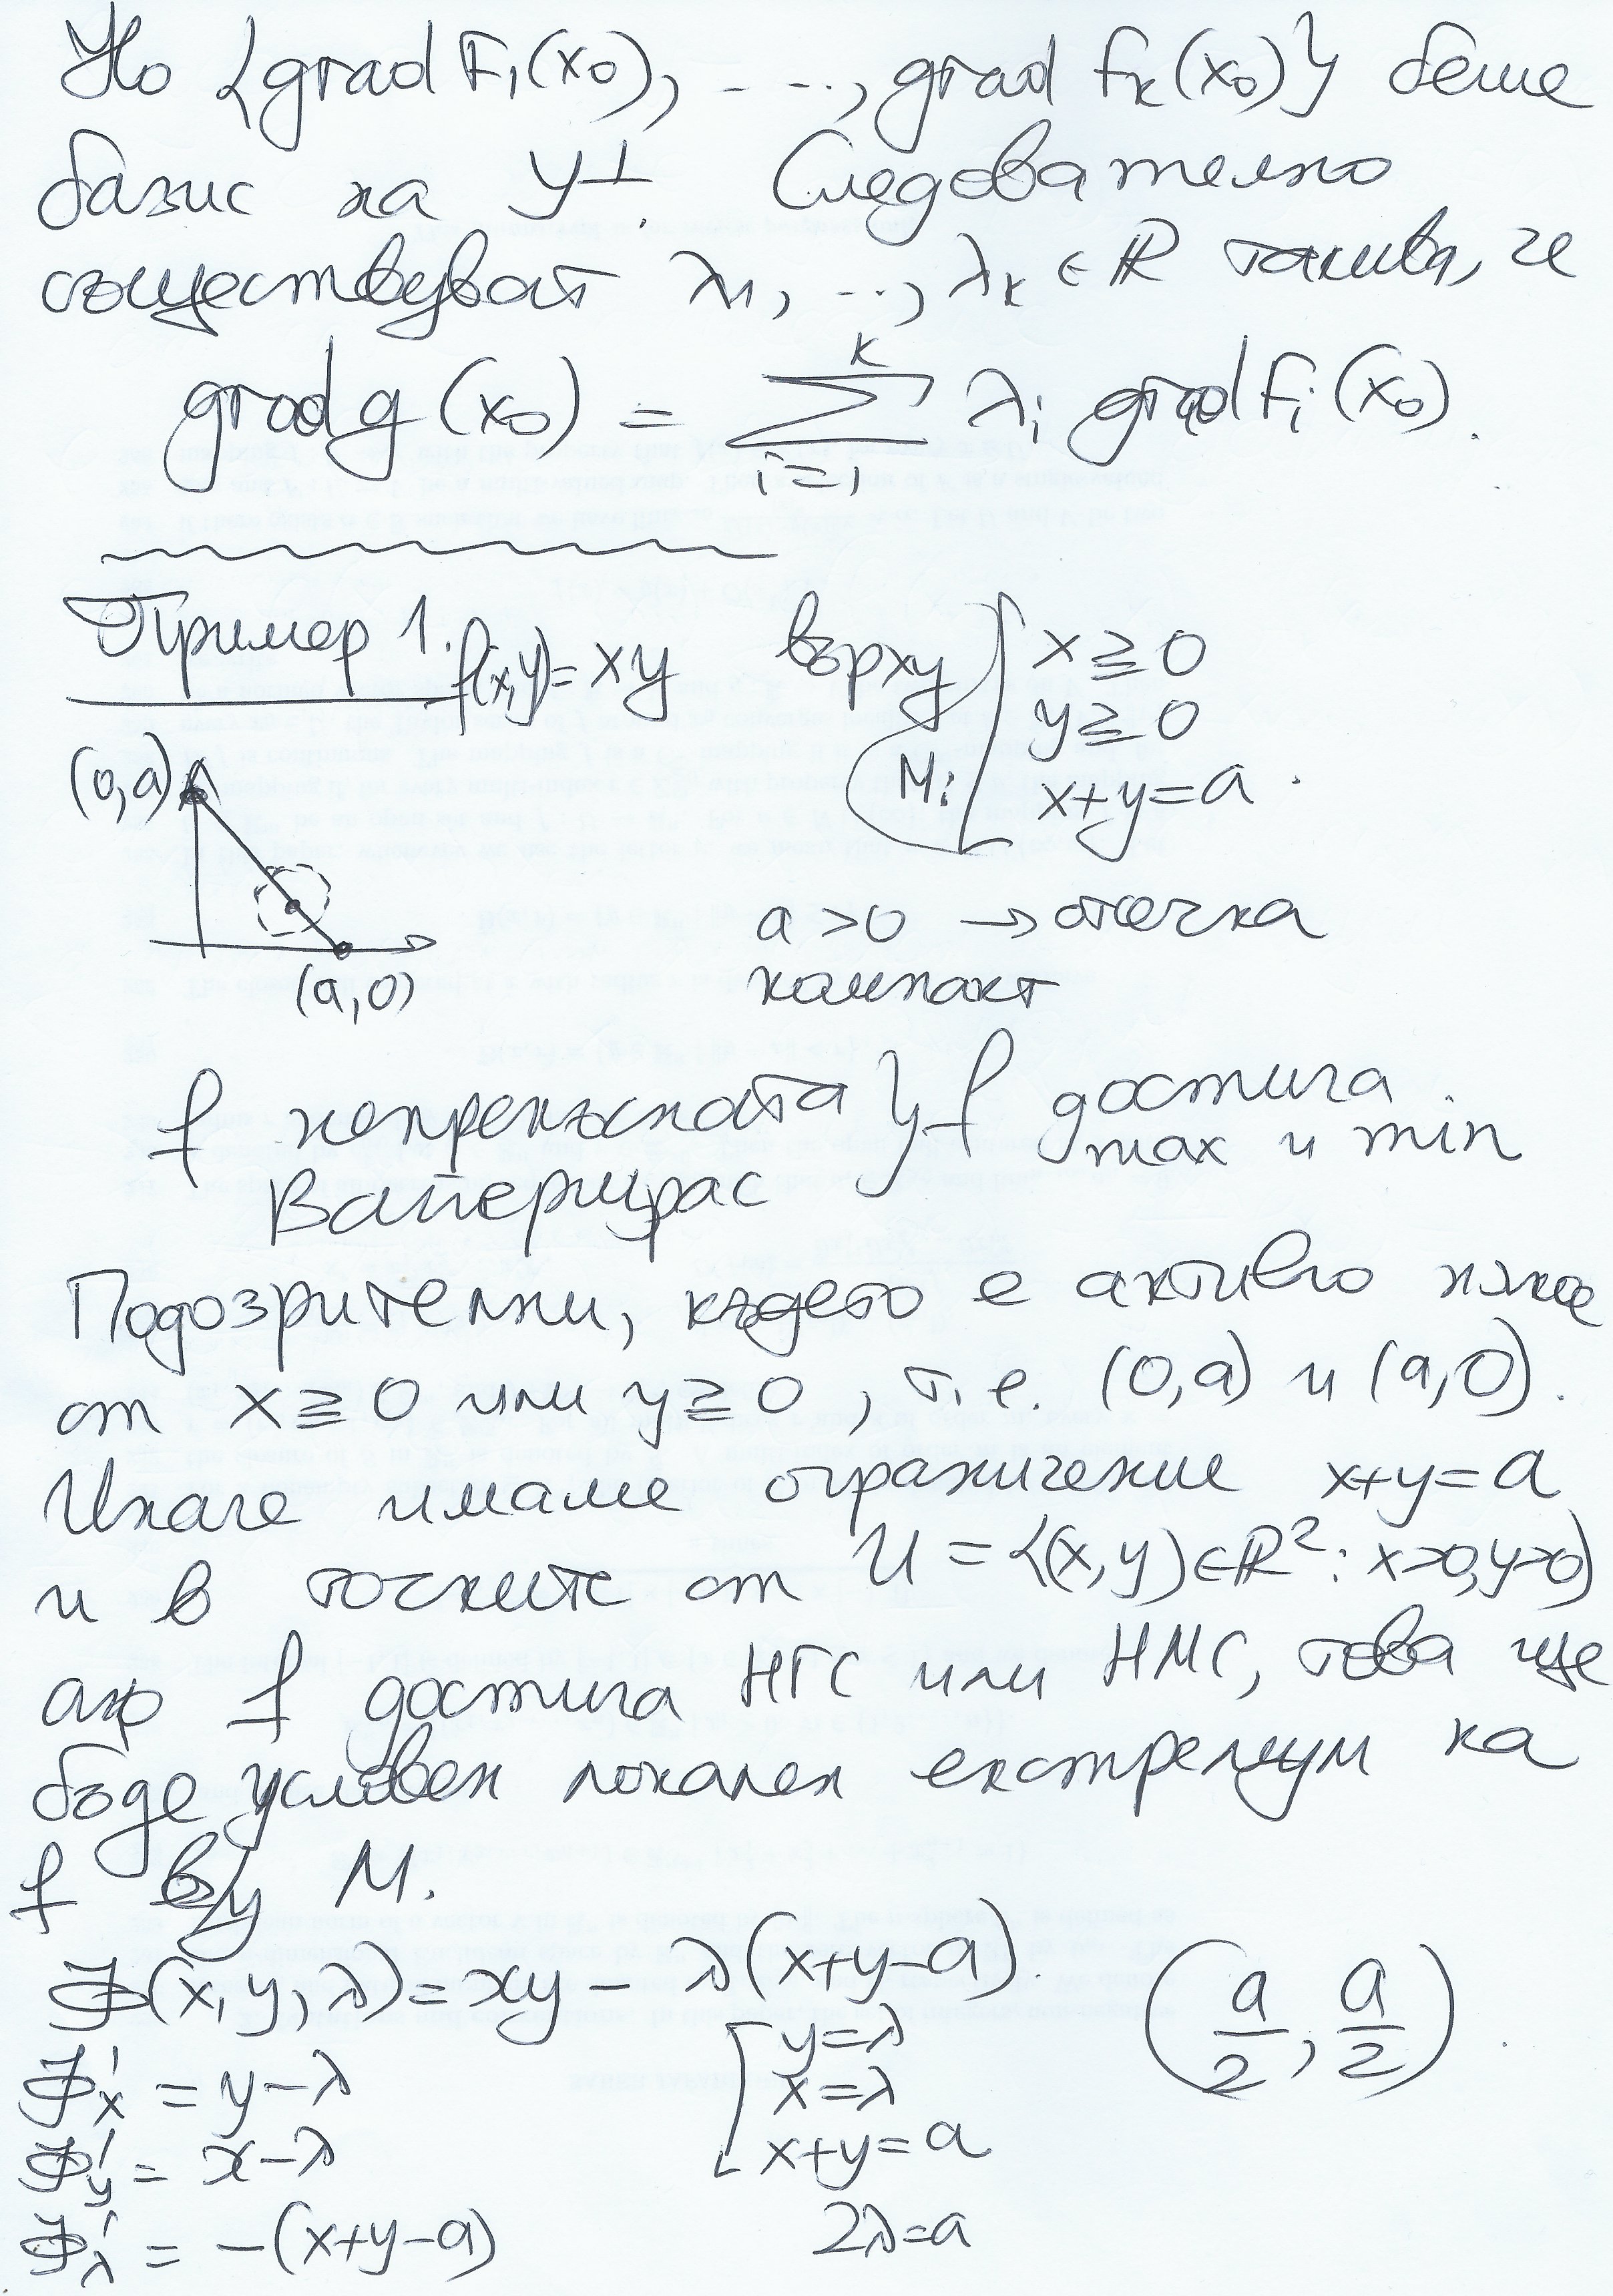 Но {grad F₁(x₀), ..., grad Fₖ(x₀)} беше
базис на Y⊥. Следователно
съществуват λ₁, ..., λₖ ∈ ℝ такива, че
grad g(x₀) = Σᵢ₌₁ᵏ λᵢ grad Fᵢ(x₀).
Пример 1. f(x,y)=xy върху M: [ x≧0
y≧0
x+y=a.
(0,a)
(a,0)
a>0 → отсечка
компакт
f непрекъсната } f достига
Вайерщрас max и min
Подозрителни, където е активно някое
от x≧0 или y≧0, т.е. (0,a) и (a,0).
Иначе имаме ограничение x+y=a
и в точките от U={(x,y)∈ℝ²: x>0,y>0}
ако f достига НГС или НМС, това ще
бъде условен локален екстремум на
f в/у M.
Φ(x,y,λ)=xy-λ(x+y-a).
Φ'ₓ = y-λ
Φ'ᵧ = x-λ
Φ'_λ = -(x+y-a)
[ y=λ
x=λ
x+y=a
2λ=a
(a/2, a/2).